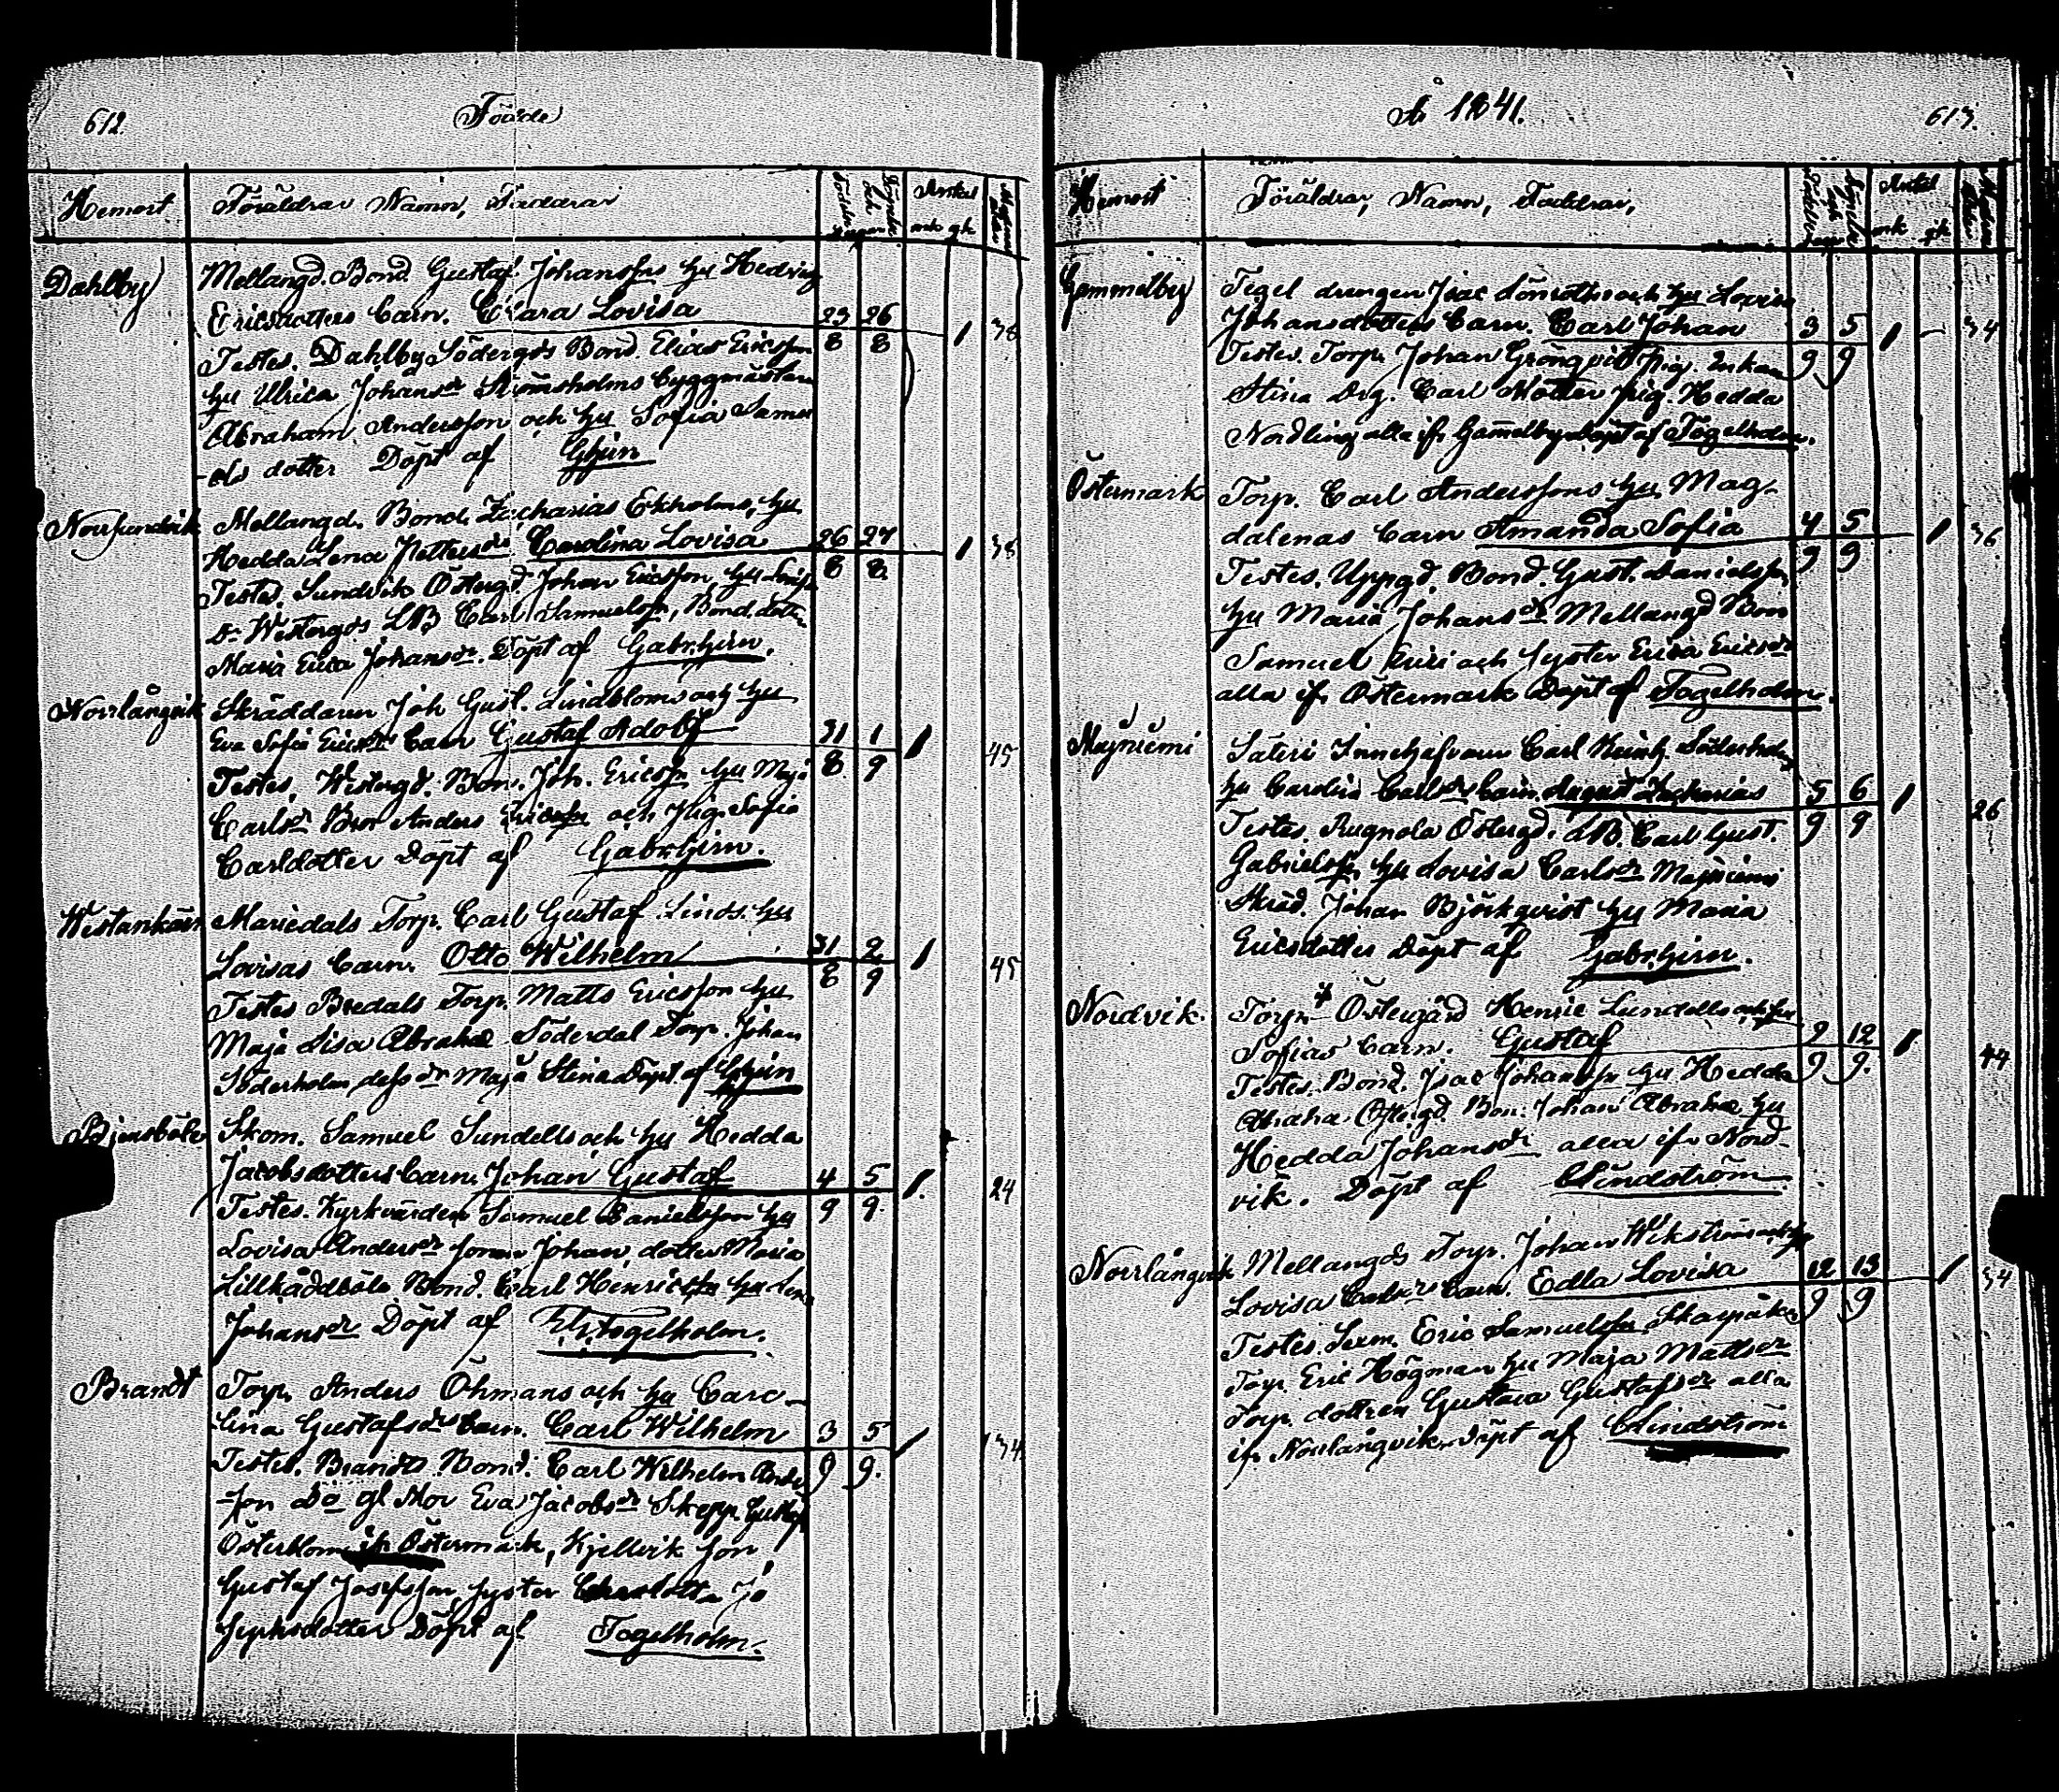 612.
Födde
Hemort
Föräldrar Namn, Faddrar
Födelse och Kyrko dagar
Antal
mk qk
Dahlby
Mellangd. Bond. Gustaf Johanssons hu Hedvig
Ericsdotters Barn. Clara Lovisa 23/8 26/8 1 38
Testes. Dahlby Södergds Bond. Elias Ericsson
hu Ulrica Johansdr Strömsholms byggmästarn
Abraham Andersson och hu Sofia Samu
els dotter Döpt af Ghirn
Norrsundvik
Mellangd. Bond. Zacharias Ekholms, hu
Hedda Lena Pettersdrs Carolina Lovisa 26/8 27/8 1 38
Testes. Sundvik Östergd. Johan Ericsson hu Lovisa
Do Westergds LB Carl Samuelsson, Bond. dotter
Maria Erica Johansdr. Döpt af Gabr. Hirn.
Norrlångvik
Skräddaren Joh Gust. Lindbloms och hu
Eva Sofia Ericsdrs Barn Gustaf Adolf 31/8 1/9 1 45
Testes. Westergd. Bon. Joh. Ericsson hu Maja
Carlsdr Bror Anders Ericsson och Pig. Sofia
Carldotter Döpt af Gabr. Hirn.
Westankärr
Mariedals Torp. Carl Gustaf Linds. hu
Lovisas Barn. Otto Wilhelm 31/8 2/9 1 45
Testes Bredals Torp. Matts Ericsson hu
Maja Lisa Abrahdr Söderdal Torp. Johan
Söderholm dess dr Maja Stina Döpt af Ghirn
Bjensböle
Skom. Samuel Sundells och hu Hedda
Jacobsdotters Barn. Johan Gustaf 4/9 5/9 1. 24
Testes. Kyrkvärden Samuel Danielsson hu
Lovisa Andersdr sonen Johan dotter Maria
Lillkåddböle Bond. Carl Henricsson hu Lena
Johansdr Döpt af Fogelholm.
Brandt
Torp. Anders Öhmans och hu Caro-
lina Gustafsdrs Barn. Carl Wilhelm 3/9 5/9 1 34
Testes. Brandts Bond. Carl Wilhelm Anders
son Do gl Mor Eva Jacobsdr Skepp. Gustaf
Österblom ifr Östermark, Kjellvik son
Gustaf Josefsson, syster Charlotta Jo
sephsdotter Döpt af Fogelholm.
År 1841.
613.
Hemort
Föräldrar, Namn, Faddrar,
Antal
mk qk
Gammelby
Tegel drengen Isac Lönroths och hu Lovisa
Johansdotters Barn. Carl Johan 3/9 5/9 1 - 34
Testes. Torp. Johan Grönqvist pig. Enkan
Stina Drg. Carl Motter pig. Hedda
Nordling alla ifr. Gammelby Döpt af Fogelholm.
Östermark
Torp. Carl Anderssons hu Mag-
dalenas Barn Amanda Sofia 4/9 5/9 1 36
Testes. Uppgd. Bond. Gust. Danielsson
hu Maria Johansdr Mellangd Bon
Samuel Erics och syster Erica Ericsdr
alla ifr. Östermark Döpt af Fogelholm.
Majniemi
Säteri Innehafvaren Carl Heinh. Söderholm
hu Carolina Carlsdrs Barn. August Zacharias 5/9 6/9 1 26
Testes. Rugnola Östergd. LB. Carl Gust.
Gabrielsson hu Lovisa Carlsdr Majniemi
Skräd. Johan Björkqvist hu Maria
Ericsdotter Döpt af Gabr. Hirn.
Nordvik.
Torp. fr Östergård Henric Lundells och hu
Sofias Barn. Gustaf 9/9 12/9. 1 44
Testes. Bond. Isac Johansson hu Hedda
Abraha. Östergd. Bon. Johan Abraha hu
Hedda Johansdr alla ifr Nord-
vik. Döpt af Clindström.
Norrlångvik
Mellangds Torp. Johan Wikströms och hu
Lovisa Carlsdrs Barn. Edla Lovisa 12/9 13/9 1 34
Testes. Sexm. Eric Samuelsson Skarpåker
Torp. Eric Högman hu Maja Mattsdr
Torp. dottren Gustava Gustafsdr alla
ifr Norrlångvik. Döpt af Clindström